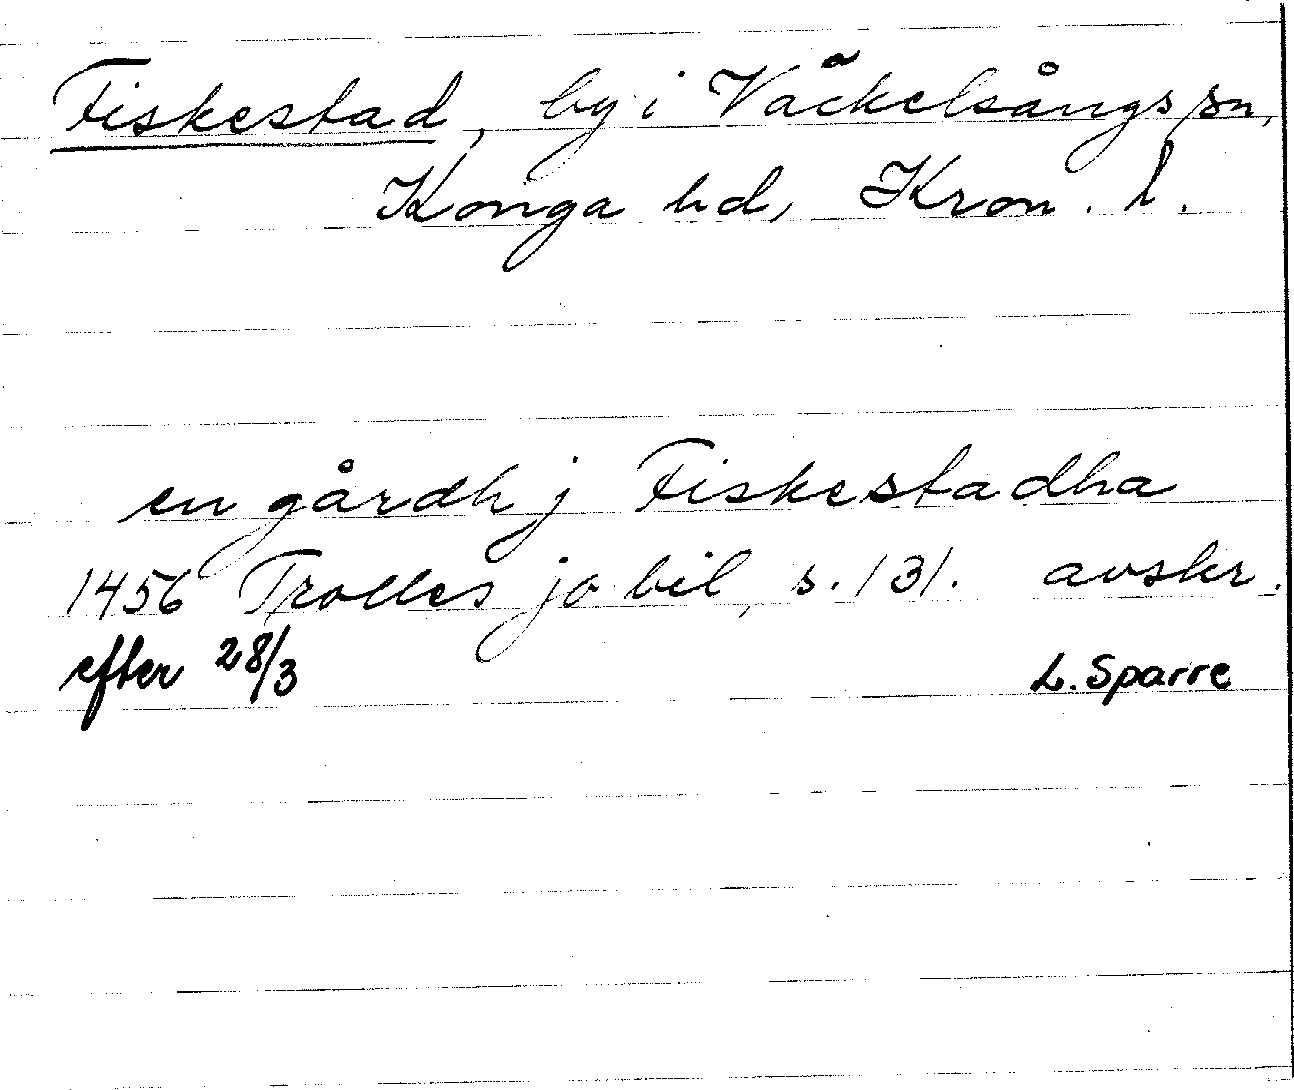 Fiskestad, by i Väckelsångs sn,
Konga hd, Kron. l.
en gårdh j Fiskestadha
1456 Trolles jo bil, s. 131. avskr.
efter 28/3 L. Sparre